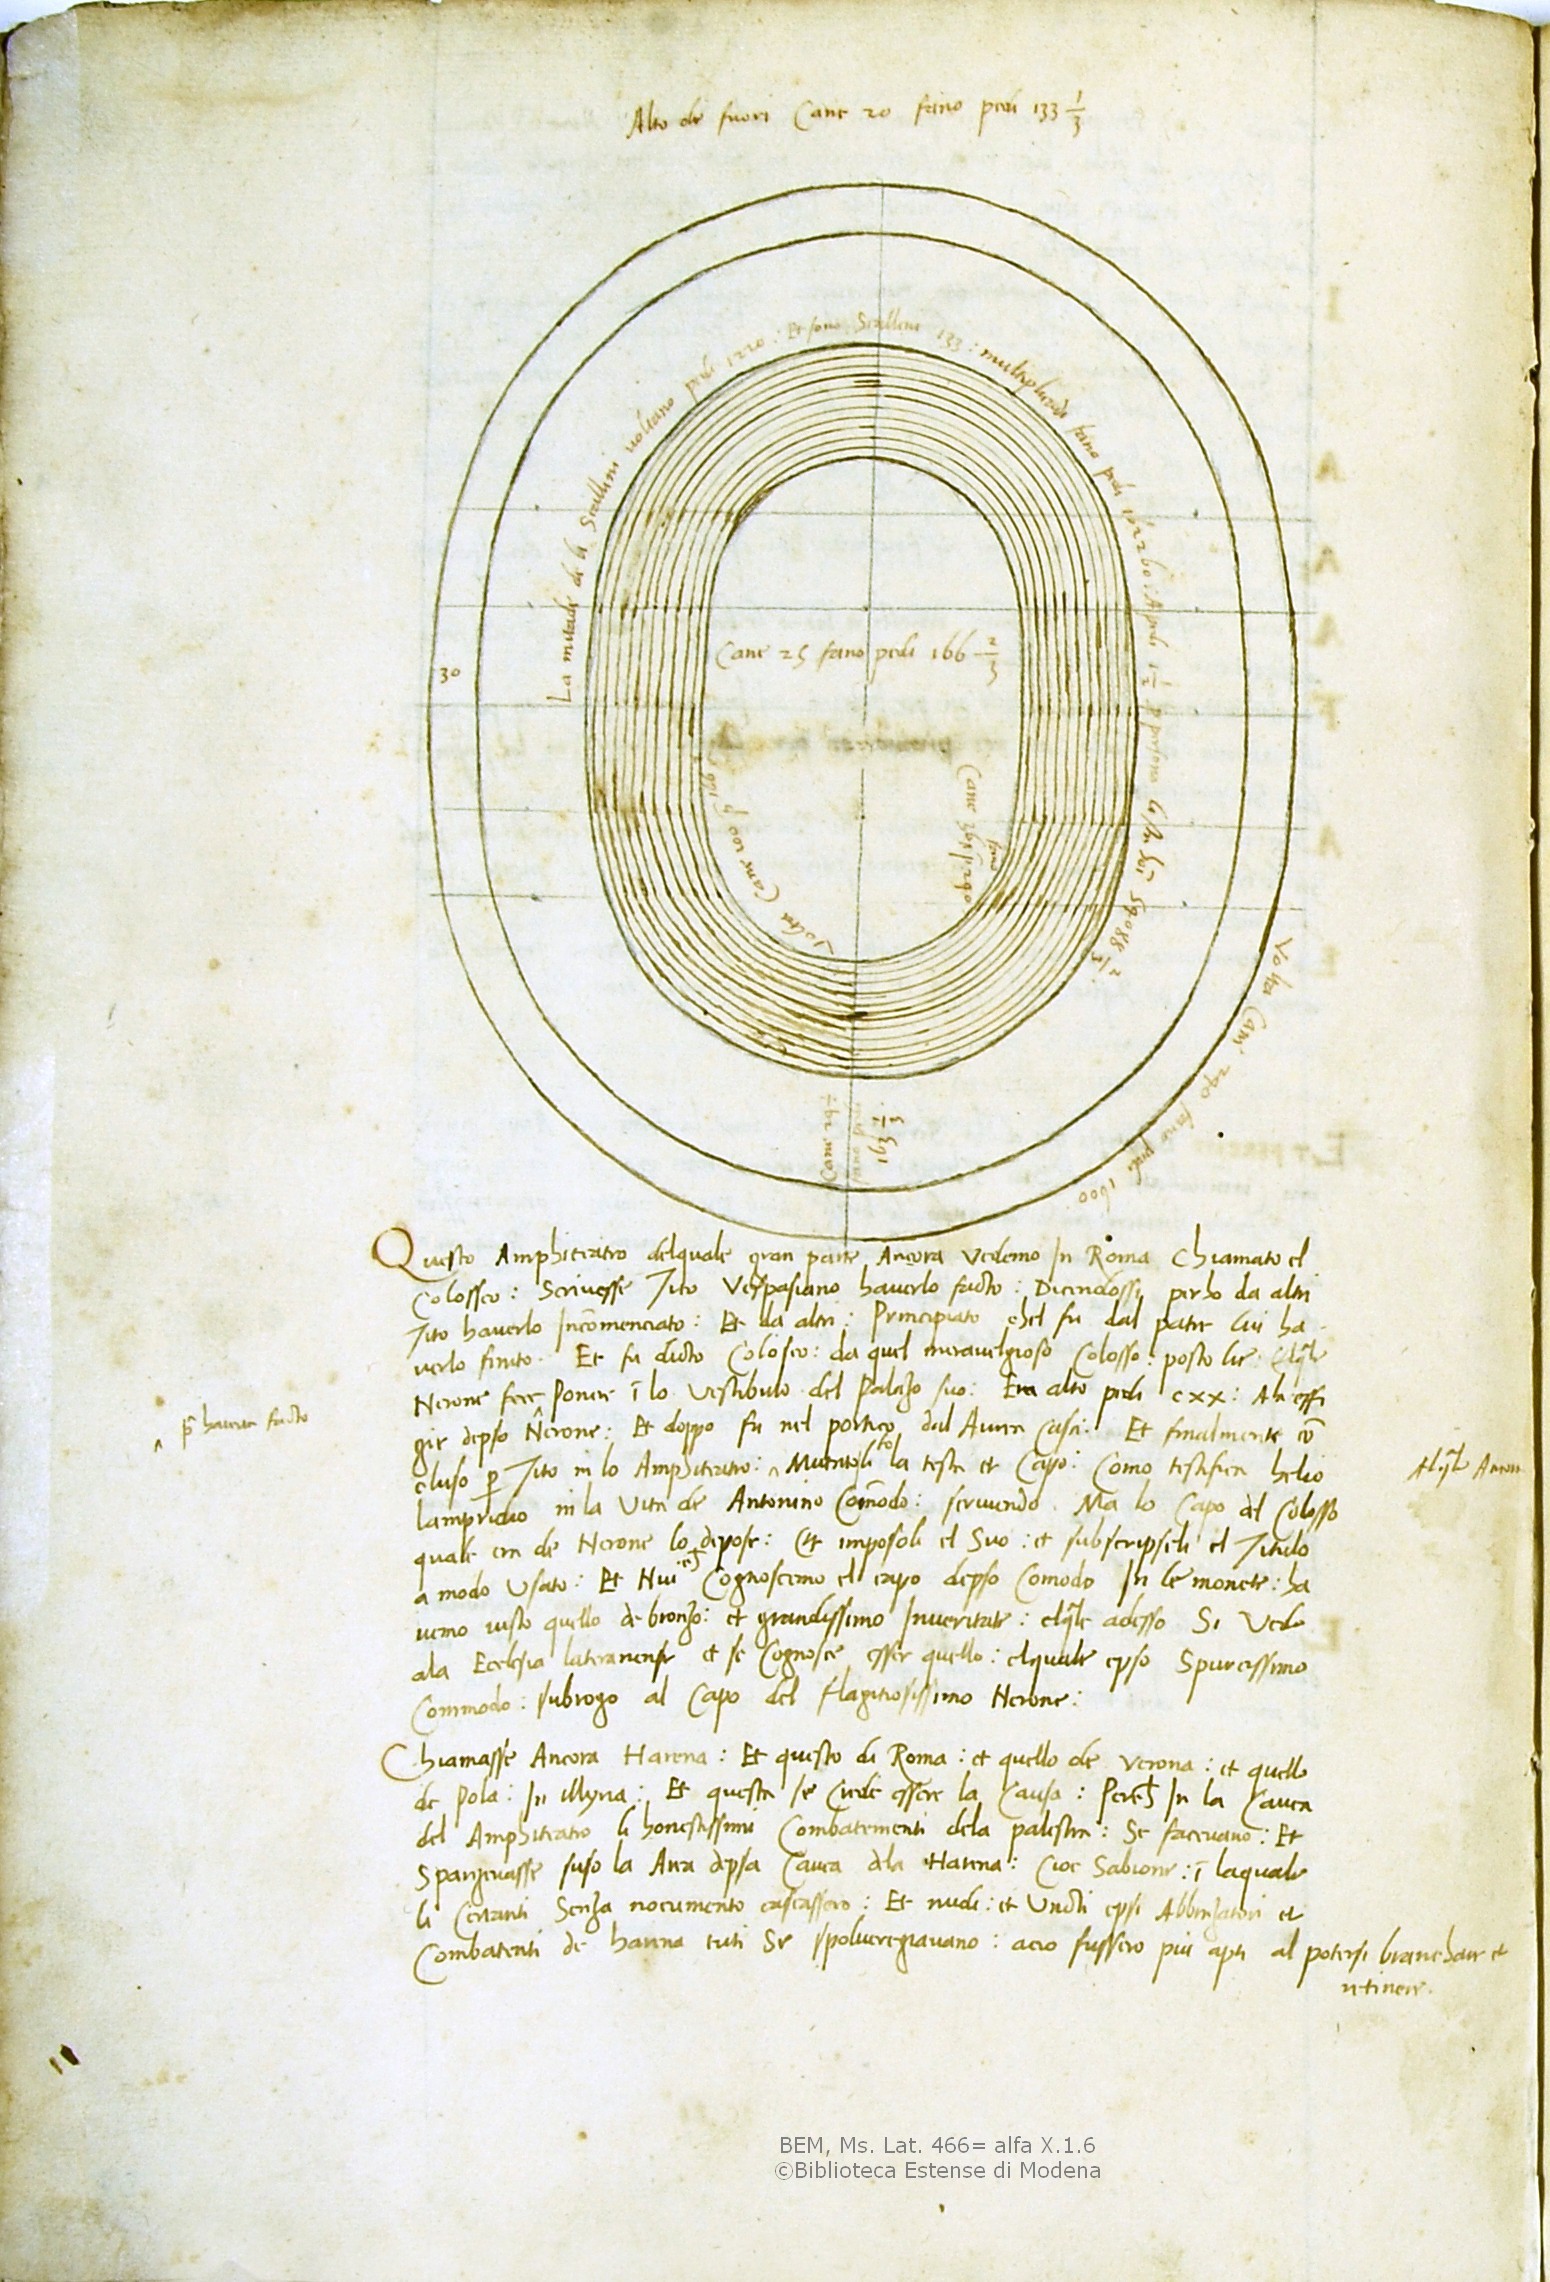 Alto de fuori Cane 20 fano pedi 133 1/3
La mitade de li Scallini voltano pedi 1220 : Et sono Scallini 133 : multiplicado fano pedi 162260 : A pedi 1 1/2 p persona
Cane 25 fano pedi 166 2/3
30
Volta Cane 100
Volta Cane 240 fano pedi 1600
Cane
fano
Questo Amphiteatro delquale gran parte Ancora Vedemo In Roma Chiamato el
Colosseo : Scrivesse Tito Vespasiano haverlo facto : Dicendossi perho da altri
Tito haverlo Incomenciato : Et da altri : Principiato chel fu dal patre lui ha
verlo finito . Et fu dicto Coloseo : da quel meravelgioso Colosso : posto lie : Elqle
Nerone fece Ponere ī lo Vestibulo del Palazo suo : Era alto pedi cxx : Ala effi
gie depso Nerone : Et doppo fu nel portico dal Aurea Casa : Et finalmente cō
cluso p Tito in lo Amphiteatro : Mutatoli la testa et Capo : Como testifica helio
p haver facto
Alqle Ancora
lampridio in la Vita de Antonino Comodo : scrivendo . Ma lo Capo del Colosso
quale era de Nerone lo depose : Et imposoli el Suo : et subscripseli el Titulo
a modo Usato : Et Nui Cognoscemo el capo depso Comodo In le monete : ha
vemo visto quello de bronzo : et grandissimo In veritate : elqle adesso Si Vede
ala Ecclesia lateranense et se Cognosce esser quello : elquale epso Spurcissimo
Commodo : subrogo al Capo del flagitiosissimo Nerone :
Chiamasse Ancora Harena : Et questo di Roma : et quello de Verona : et quello
de Pola : In illyria : Et questa se Crede essere la Causa : Perch In la Cavea
del Amphiteatro li honestissimi Combatementi dela palestra : Se facevano : Et
Spargevasse suso la Area depsa Cavea dela Harena : Cioe Sabione : ī laquale
li Certanti Senza nocumento cascassero : Et nudi : et Uncti epsi Abbrazatori et
Combatenti de harena tuti Se spolveregiavano : acio fussero piu apti al potersi branchare et
retinere .
BEM, Ms. Lat. 466= alfa X.1.6
©Biblioteca Estense di Modena